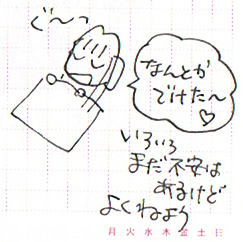 ぐ〜っ
なんとか
でけた〜
♡
いろいろ
まだ不安は
あるけど
よくねよう
月火水木金土日